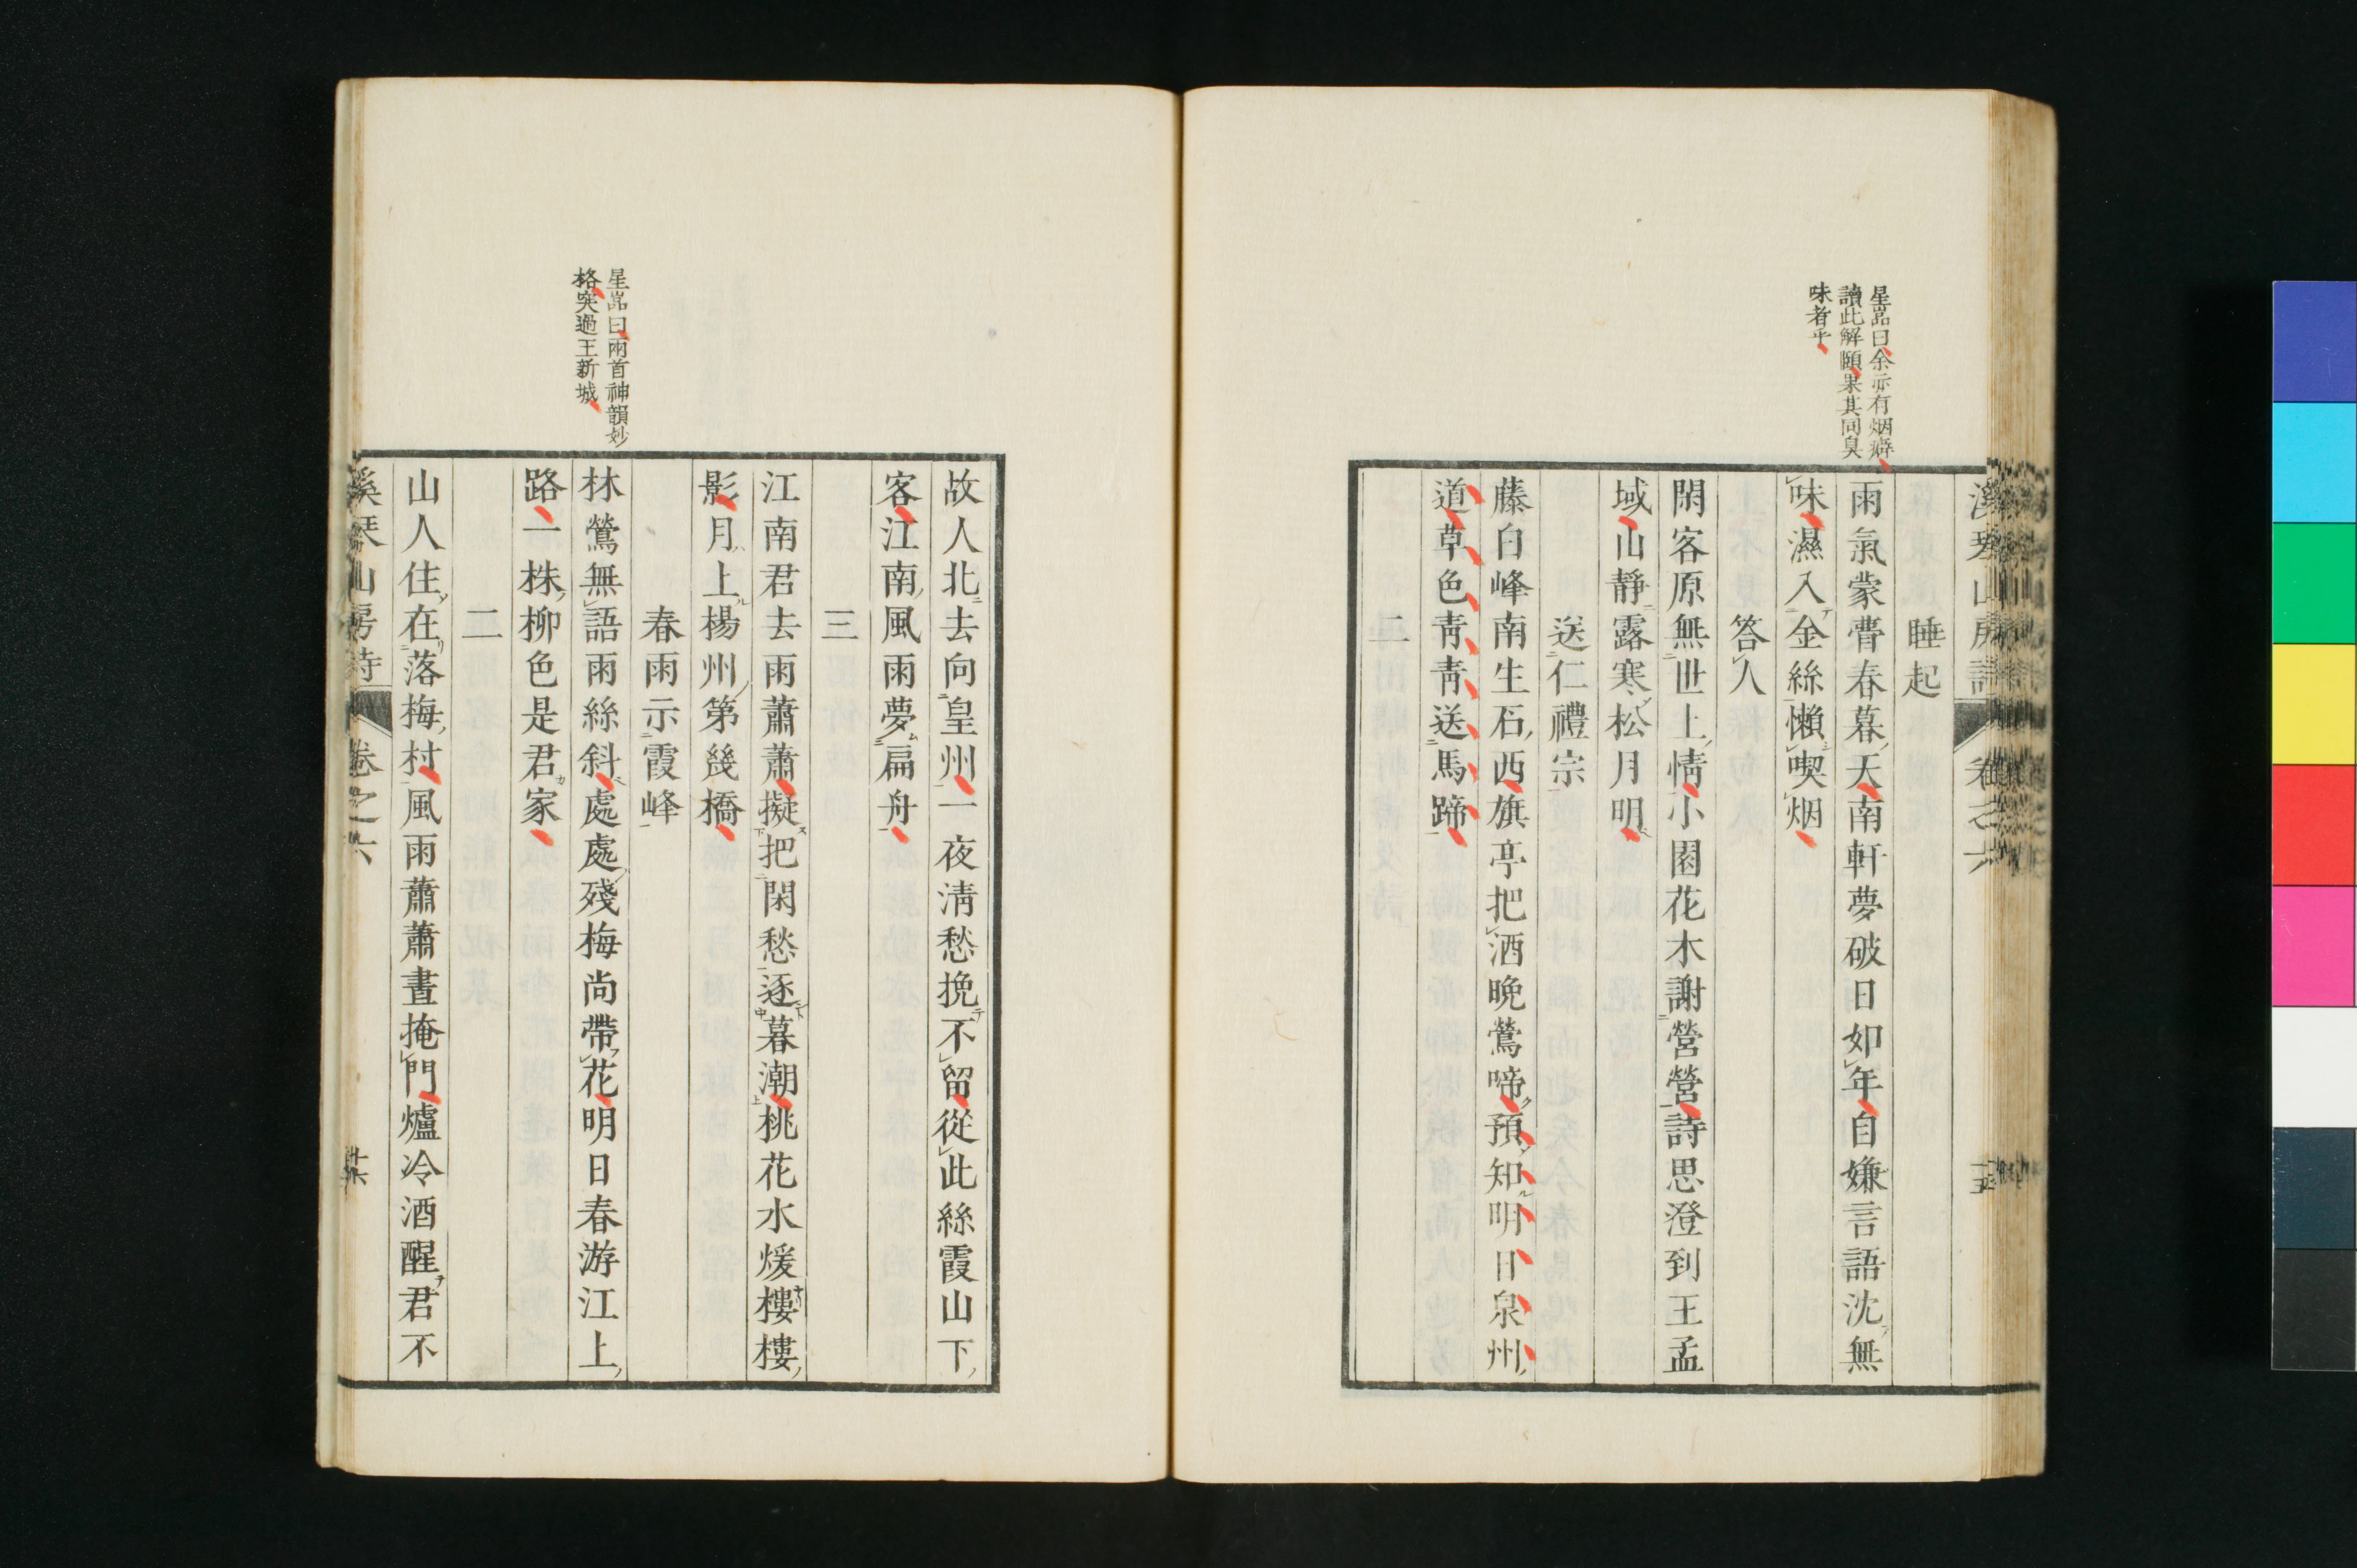 星嵓曰余亦有烟癖
讀此解頤果其同臭
味者乎
溪琴山房詩 卷之六
睡起
雨氣蒙瞢春暮天南軒夢破日如年自嫌言語沈無
味濕入金絲懶喫烟
答人
閑客原無世上情小園花木謝營營詩思澄到王孟
域山靜露寒松月明
送仁禮宗
藤白峰南生石西旗亭把酒晚鶯啼預知明日泉州
道草色青青送馬蹄
二
故人北去向皇州一夜淸愁挽不留從此絲霞山下
客江南風雨夢扁舟
三
江南君去雨蕭蕭擬把閑愁逐暮潮桃花水煖樓樓
影月上楊州第幾橋
星嵓曰兩首神韻妙
格突過王新城
春雨示霞峰
林鶯無語雨絲斜處處殘梅尚帶花明日春游江上
路一株柳色是君家
二
山人住在落梅村風雨蕭蕭晝掩門爐冷酒醒君不
溪琴山房詩 卷之六